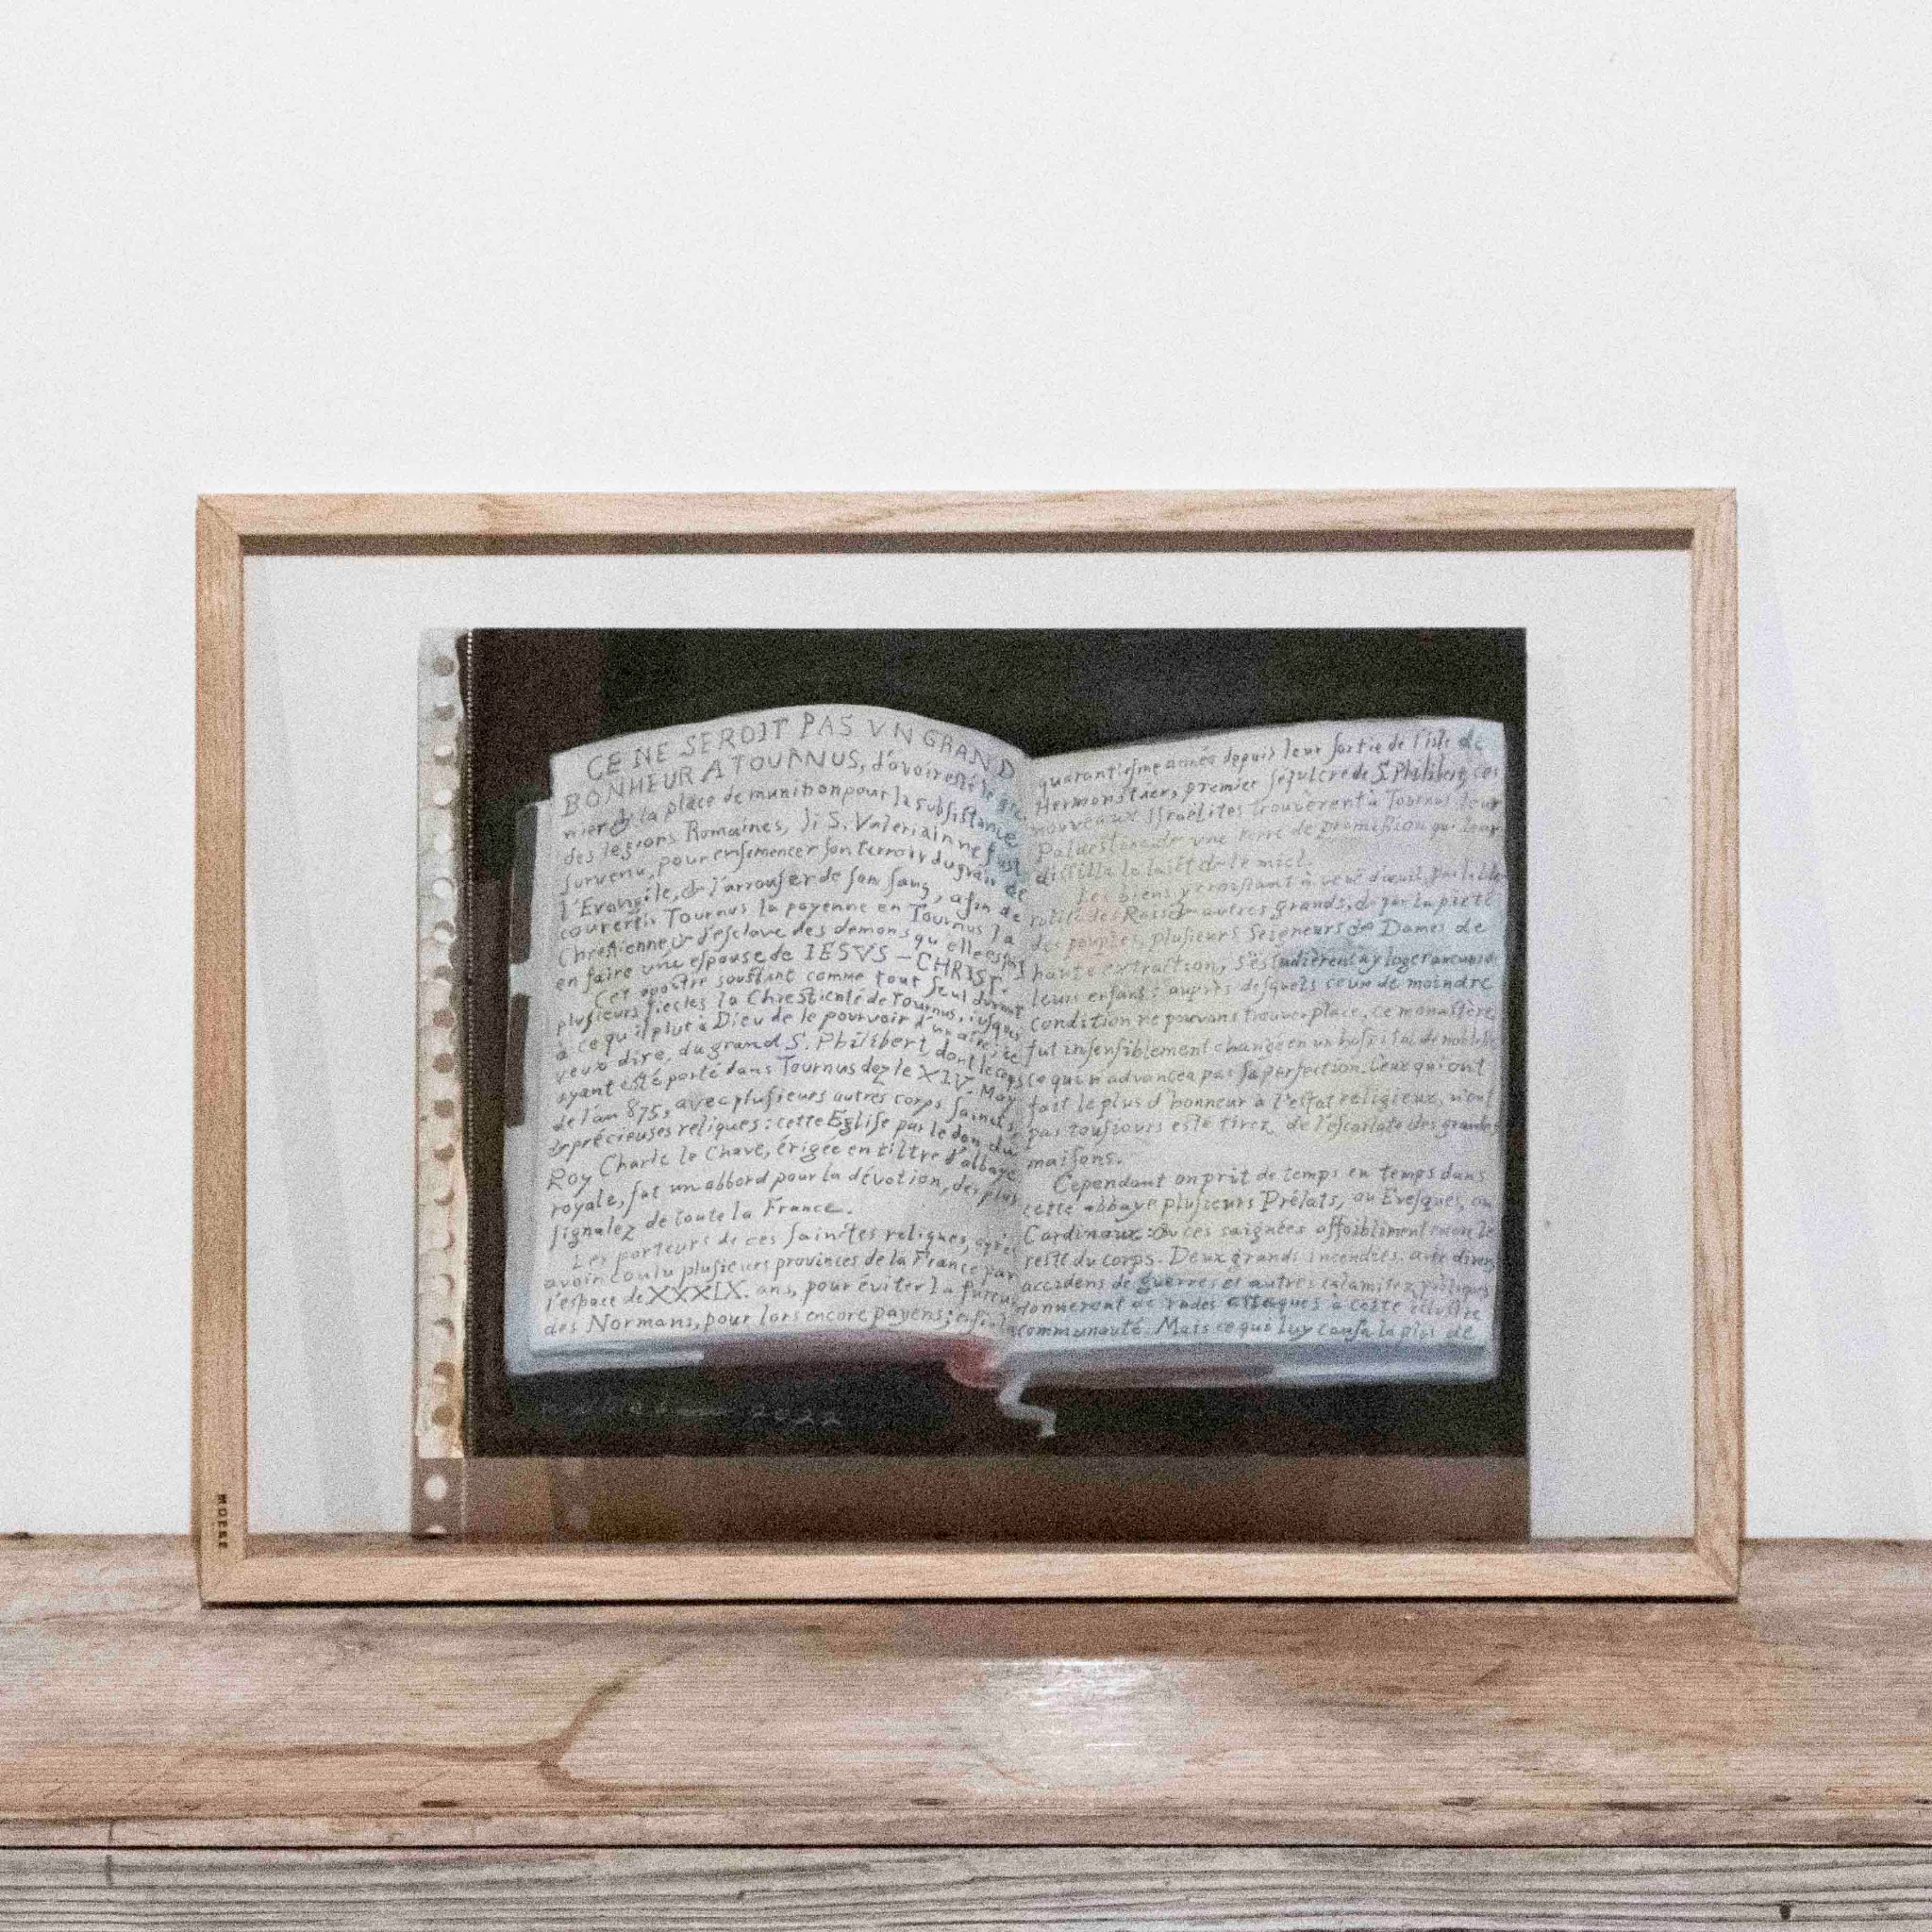 CE NE SEROIT PAS VN GRAND
BONHEUR A TOURNUS, d'avoir esté le gre-
nier & la place de munition pour la subsistance
des legions Romaines, si S. Valeriain ne fust
survenu, pour ensemencer son terroir du grain de
l'Evangile, & l'arrouser de son sang, afin de
couvertir Tournus la payenne en Tournus la
Chrestienne & d'esclave des demons qu'elle estoit
en faire une espouse de IESVS-CHRIST.
Cet apostre soustint comme tout seul durant
plusieurs siecles la Chrestienté de Tournus, iusques
à ce qu'il plut à Dieu de le pourvoir d'un
veux dire, du grand S. Philibert, dont le corps
ayant esté porté dans Tournus dez le XIV. May
de l'an 875, avec plusieurs autres corps saincts,
& précieuses reliques: cette Eglise par le don du
Roy Charle le Chave, érigée en tiltre d'abbaye
royale, fut un abbord pour la dévotion, des plus
signalez de toute la France.
Les porteurs de ces sainctes reliques, aprés
avoir coulu plusieurs provinces de la France par
l'espace de XXXIX. ans, pour éviter la fureur
des Normans, pour lors encore payens;
quarantiesme année depuis leur sortie de l'isle de
Hermonstier, premier sépulcre de S. Philibert, ces
nouveaux Israëlites trouvèrent à Tournus leur
Palaestine, & une terre de promission qui leur
distilla le laict & le miel.
Les biens y croissant à veuë d'oeuil, par la
des Rois & autres grands, & par la pieté
des peuples, plusieurs Seigneurs & Dames de
haute extraction, s'estudièrent à y loger aucuns de
leurs enfans: auprès desquels ceux de moindre
condition ne pouvans trouver place, ce monastère
fut insensiblement changé en un hospital de noblesse
ce qui n'advancea pas sa perfection. Ceux qui ont
fait le plus d'honneur à l'estat religieux, n'ont
pas tousiours esté tirez de l'escarlate des grandes
maisons.
Cependant on prit de temps en temps dans
cette abbaye plusieurs Prélats, ou Evesques, ou
Cardinaux: & ces saignées affoiblirent le
reste du corps. Deux grands incendies, avec divers
accidens de guerres et autres calamitez publiques
donnerent de rudes attaques à cette illustre
communauté. Mais ce qui luy causa la plus de
2022
MOEBE